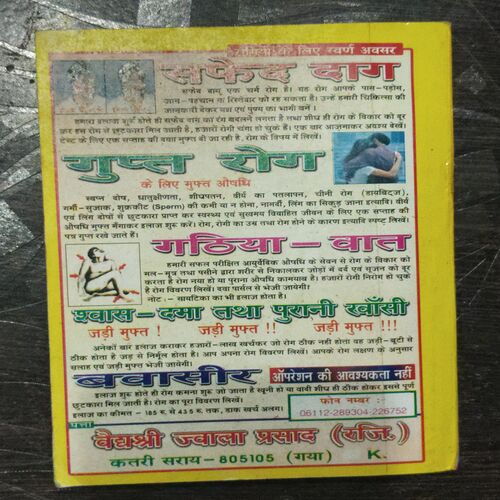 रोगियों के लिए स्वर्ण अवसर
सफेद दाग
सफेद दाग एक चर्म रोग है। यह रोग आपके पास-पड़ोस,
जान-पहचान के रिस्तेदार को रह सकता है। उन्हें हमारी चिकित्सा की
जानकारी देकर यश एवं पुण्य का भागी बनें।
हमारा इलाज शुरू होते ही सफेद दाग का रंग बदलने लगता है तथा शीघ्र ही रोग के विकार को दूर
कर इस रोग से छुटकारा मिल जाता है, हजारों रोगी चंगा हो चुके हैं। एक बार आजमाकर अवश्य देखें।
टेस्ट के लिए एक सप्ताह की दवा मुफ्त दी जा रही है. रोग के विषय में लिखें।
गुप्त रोग
के लिए मुफ्त औषधि
स्वप्न दोष, धातुक्षीणता, शीघ्रपतन, वीर्य का पतलापन, चीनी रोग (डायबिट्ज),
गर्मी-सुजाक, शुक्रकीट (Sperm) की कमी या न होना, नामर्दी, लिंग का विकृत जाना इत्यादि। वीर्य
एवं लिंग दोषों से छुटकारा प्राप्त कर स्वस्थ्य एवं सुखमय विवाहित जीवन के लिए एक सप्ताह की
औषधि मुफ्त मँगाकर इलाज शुरू करें। रोग, रोगी का उम्र तथा रोग होने के कारण इत्यादि स्पष्ट लिखें।
पत्र गुप्त रखे जाते हैं।
गठिया – वात
हमारी सफल परीक्षित आयुर्वेदिक औषधि के सेवन से रोग के विकार को
मल-मूत्र तथा पसीने द्वारा शरीर से निकालकर जोड़ों में दर्द एवं सूजन को दूर
करता है रोग नया हो या पुराना औषधि कामयाब है। हजारों रोगी निरोग हो चुके
है रोग विवरण लिखें। दवा पार्सल से भेजी जायेगी।
नोट - सायटिका का भी इलाज होता है।
श्वास-दमा तथा पुरानी खाँसी
जड़ी मुफ्त ! जड़ी मुफ्त !! जड़ी मुफ्त !!!
अनेकों बार इलाज कराकर हजारों-लाख खर्चकर जो रोग ठीक नहीं होता वह जड़ी-बूटी से
ठीक होता है जड़ से निर्मूल होता है। आप अपना रोग विवरण लिखें। आपके रोग लक्षण के अनुसार
सलाह एवं जड़ी मुफ्त भेजी जायेगी।
बवासीर ऑपरेशन की आवश्यकता नहीं
इलाज शुरू होते ही रोग कमना शुरू हो जाता है खूनी हो या वादी शीघ्र ही ठीक होकर इससे पूर्ण
छुटकारा मिल जाती है। रोग का पूरा विवरण लिखें।
इलाज का कीमत - 185 रु. से 435 रु. तक, डाक खर्च अलग।
फोन नम्बर :-
06112-289304-226752
पत्ता
वैद्यश्री ज्वाला प्रसाद (रजि.)
कतरी सराय-805105 (गया) K.